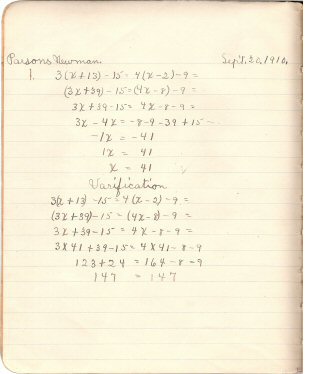 Parsons Newman. Sep't. 20, 1910.
1. 3(x+13)-15=4(x-2)-9=
(3x+39)-15=(4x-8)-9=
3x+39-15=4x-8-9=
3x-4x=-8-9-39+15-
-1x=-41
1x=41
x=41
Varification
3(x+13)-15=4(x-2)-9=
(3x+39)-15=(4x-8)-9=
3x+39-15=4x-8-9=
3x41+39-15=4x41-8-9
123+24=164-8=9
147=147